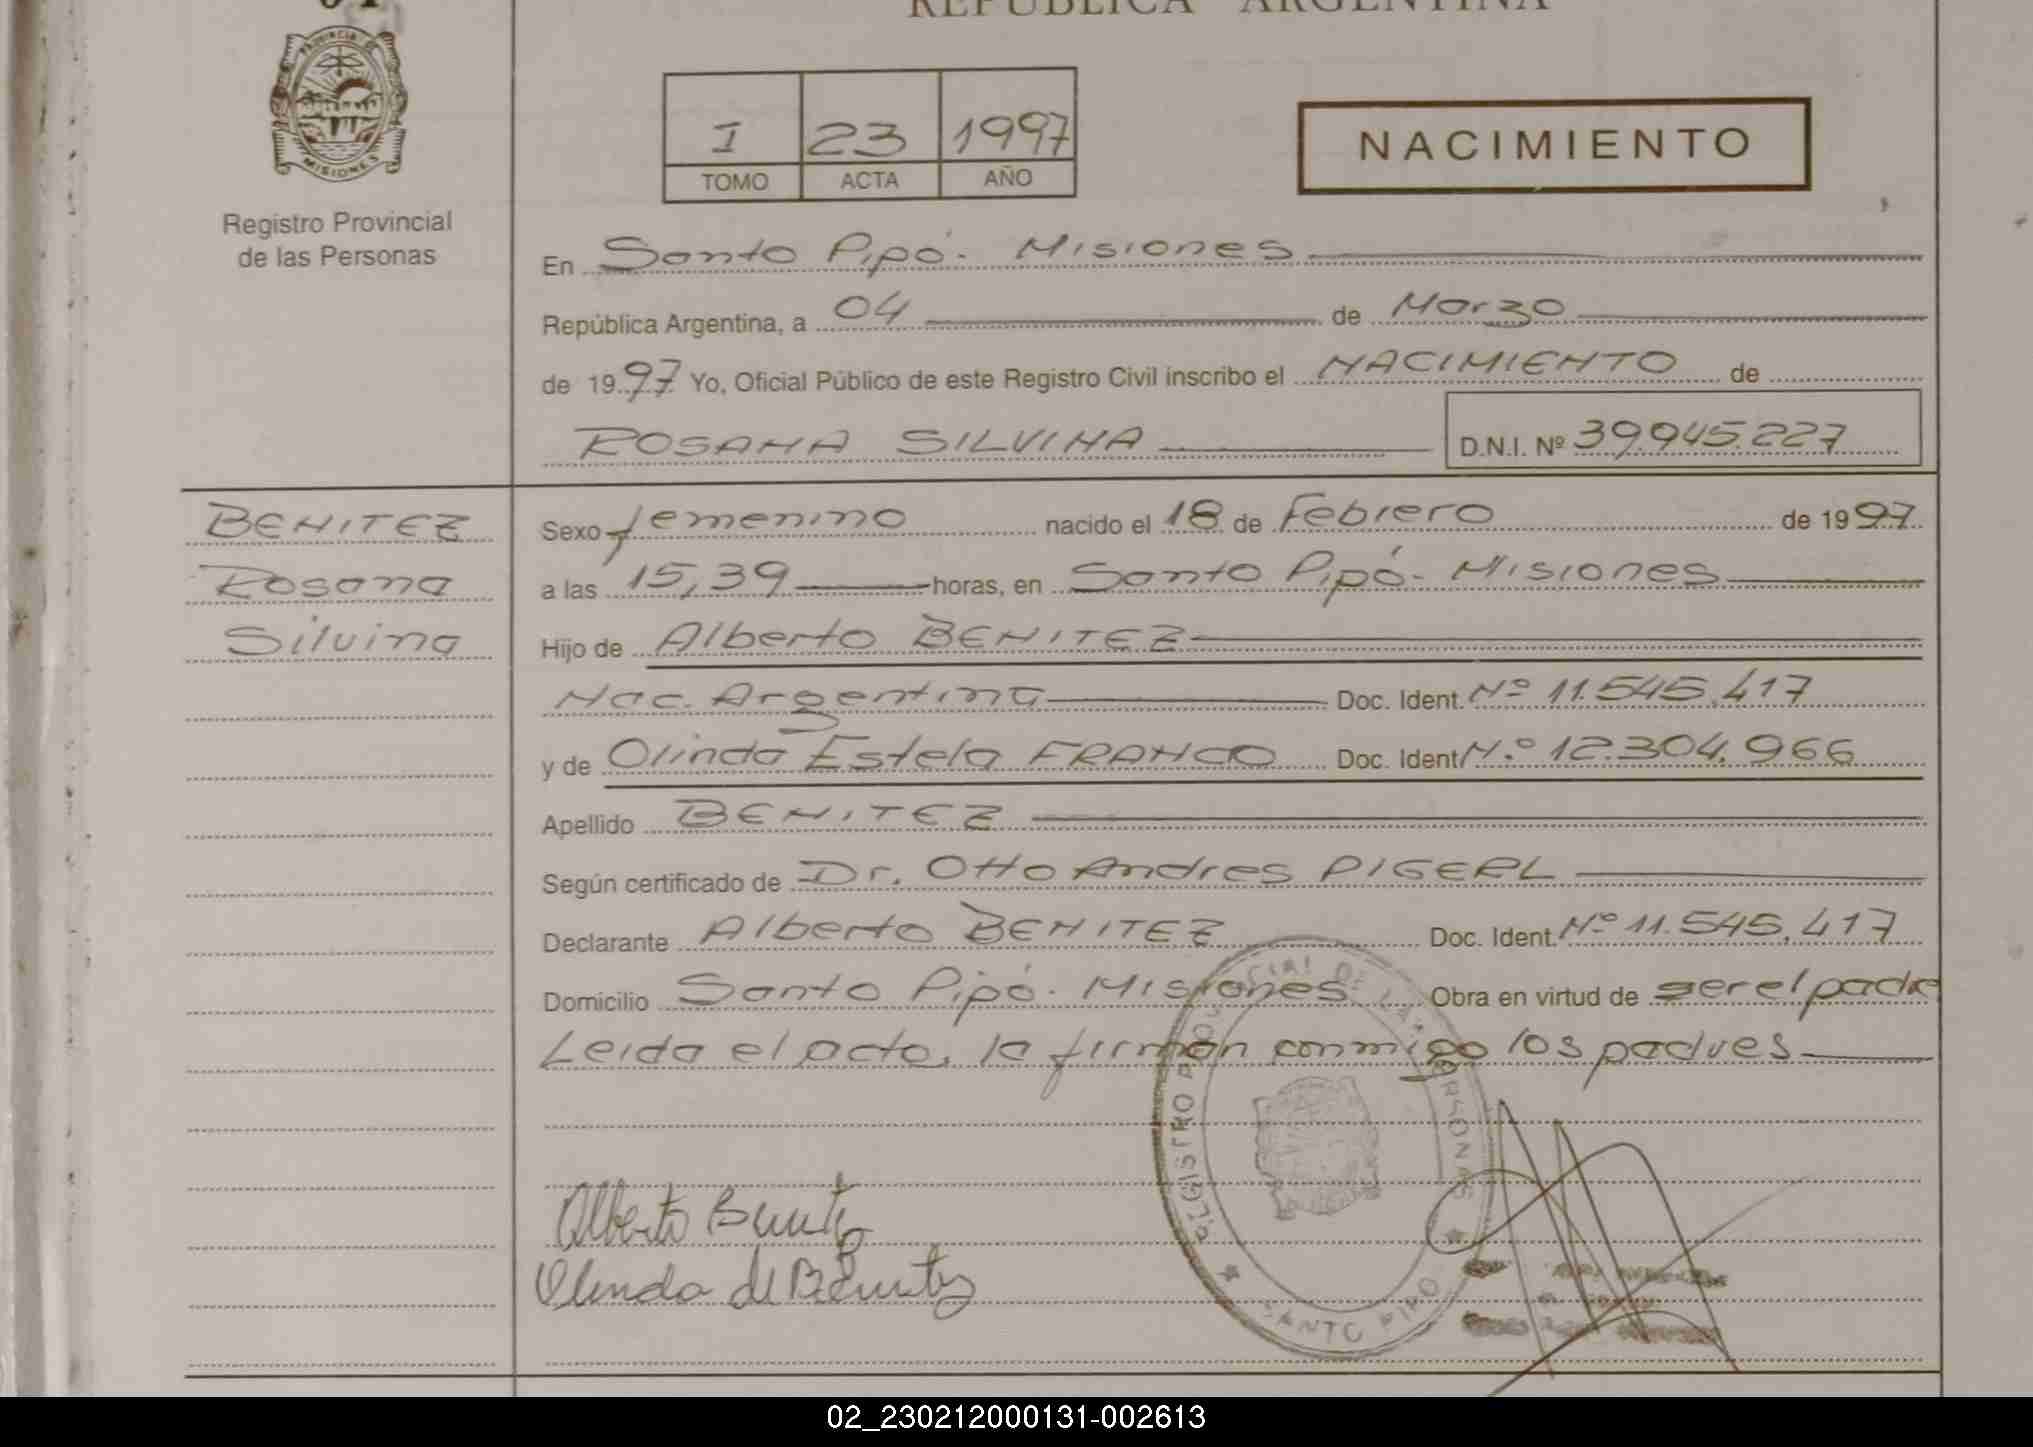 REPUBLICA ARGENTINA
PROVINCIA DE
MISIONES
Registro Provincial
de las Personas
I 23 1997
TOMO ACTA AÑO
NACIMIENTO
En Santo Pipó. Misiones
República Argentina, a 04 de Marzo
de 1997 Yo, Oficial Público de este Registro Civil inscribo el NACIMIENTO de
ROSANA SILVINA D.N.I. Nº 39.945.227
BENITEZ
Rosana
Silvina
Sexo femenino nacido el 18 de Febrero de 1997
a las 15,39 horas, en Santo Pipó. Misiones
Hijo de Alberto BENITEZ
Nac. Argentina Doc. Ident. Nº 11.545.417
y de Olinda Estela FRANCO Doc. Ident Nº 12.304.966
Apellido BENITEZ
Según certificado de Dr. Otto Andres PIGERL
Declarante Alberto BENITEZ Doc. Ident. Nº 11.545.417
Domicilio Santo Pipó. Misiones Obra en virtud de ser el padre
Leida el acta, la firman conmigo los padres
REGISTRO PROVINCIAL DE LAS PERSONAS
SANTO PIPO
Alberto Benitez
Olinda de Benitez
02_230212000131-002613